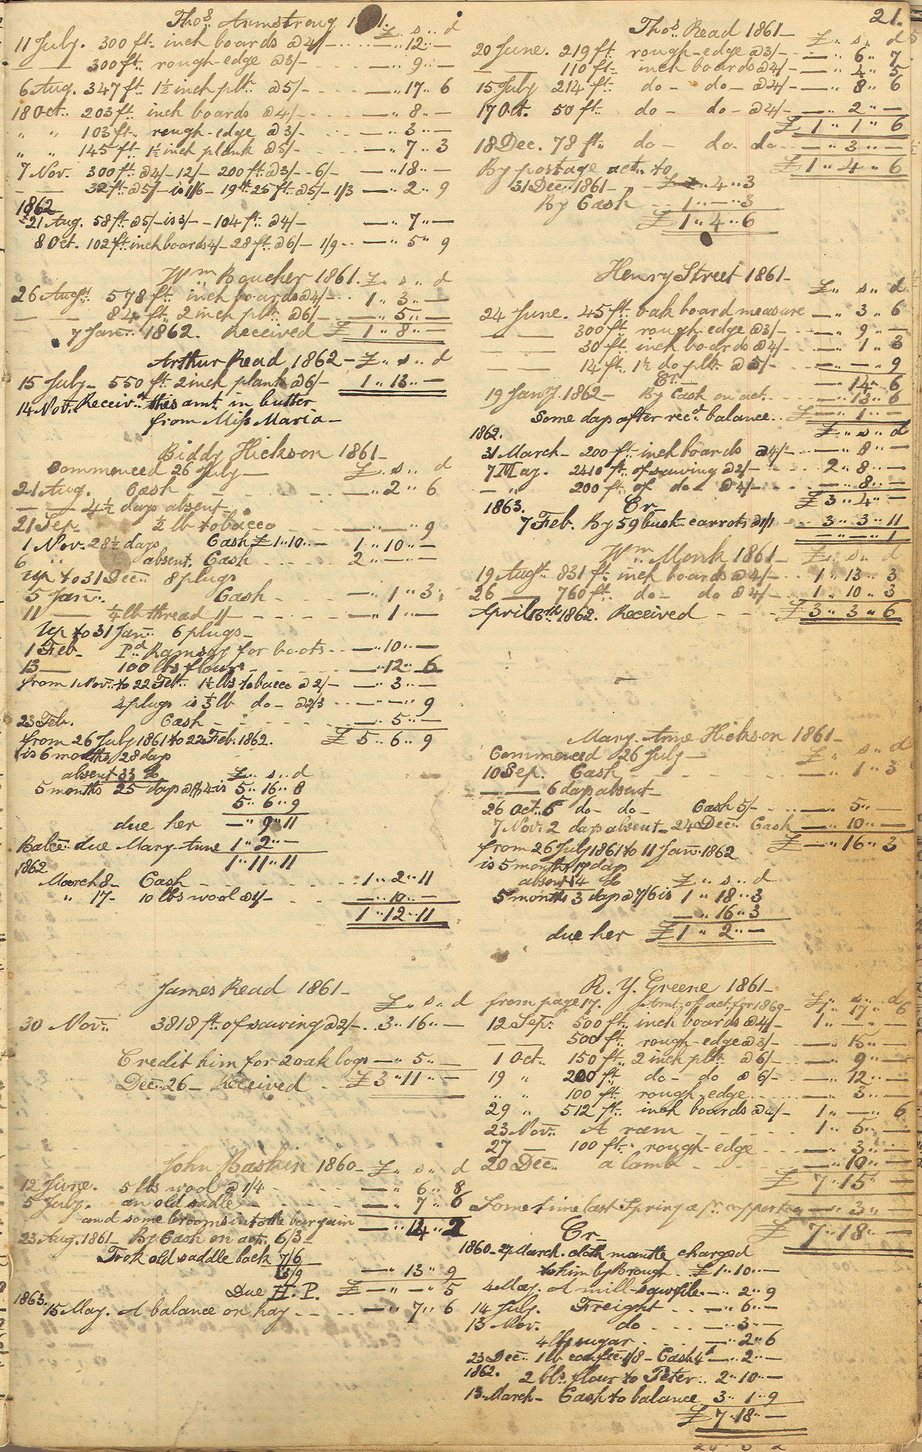 21.
Thos. Armstrong 1861.
£ .. s .. d
11 July. 300 ft. inch boards @ 4/- — .. 12 .. —
— — 300 ft. rough-edge @ 3/- — .. 9 .. —
6 Aug. 347 ft. 1½ inch plk. @ 5/- — .. 17 .. 6
18 Oct. 203 ft. inch boards @ 4/- — .. 8 .. —
" " 103 ft. rough-edge @ 3/- — .. 3 .. —
" " 145 ft. 1½ inch plank @ 5/- — .. 7 .. 3
7 Nov. 300 ft. @ 4/- 12/- 200 ft. @ 3/- 6/- — .. 18 .. —
— — 32 ft. @ 5/- is 1/6 - 19th. 25 ft. @ 5/- 1/3 — .. 2 .. 9
1862
21 Aug. 58 ft. @ 5/- is 3/- - 104 ft. @ 4/- — .. 7 .. —
8 Oct. 102 ft. inch boards 4/- 28 ft. @ 6/- 1/9 — .. 5 .. 9
Wm. Boucher 1861. £ .. s .. d
26 Augt. 578 ft. inch boards @ 4/- 1 .. 3 .. —
— — 84 ft. 2 inch plk. @ 6/- — .. 5 .. —
7 Jany. 1862. Received £ 1 .. 8 .. —
Arthur Read 1862 — £ .. s .. d
15 July — 550 ft. 2 inch plank @ 6/- 1 .. 13 .. —
14 Nov. Receivd. this amt. in butter
from Miss Maria —
Biddy Hickson 1861
Commenced 26 July — £ .. s .. d
21 Aug. Cash — .. 2 .. 6
— — 4½ days absent —
21 Sep. ½ lb tobacco — .. — .. 9
1 Nov. 28½ days Cash £1 .. 10 .. — 1 .. 10 .. —
6 " absent. Cash 2 .. — .. —
Up to 31 Dec. 8 plugs
5 Jany. Cash — .. 1 .. 3
11 ¼ lb thread — .. 1 .. —
Up to 31 Jany. 6 plugs —
1 Feb. Pd. Ramsay for boots — .. 10 .. —
13 — 100 lbs flour — .. 12 .. 6
from 1 Nov. to 22 Feb. 1½ lbs tobacco @ 2/- — .. 3 .. —
4 plugs is ⅓ lb do — @ 2/3 — .. — .. 9
23 Feb. Cash — .. 5 .. —
from 26 July 1861 to 22 Feb. 1862. £ 5 .. 6 .. 9
is 6 months / 28 days
absent 33 do £ .. s .. d
5 months 25 days @ is 5 .. 16 .. 8
5 .. 6 .. 9
due her — .. 9 .. 11
Balce. due Mary-Anne 1 .. 2 .. —
1862 1 .. 11 .. 11
March 8 — Cash 1 .. 2 .. 11
" 17 - 10 lbs wool @ 1/- — .. 10 .. —
1 .. 12 .. 11
James Read 1861 —
£ .. s .. d
30 Nov. 3818 ft. of sawing @ 2/- 3 .. 16 .. —
Credit him for 2 oak logs — .. 5 .. —
Dec. 26 — Received £ 3 .. 11 .. —
John Baskin 1860 — £ .. s .. d
12 June. 5 lbs wool @ 1/4 — .. 6 .. 8
5 July. an old sadle — .. 7 .. 6
and some brooms into the bargain — .. 14 .. 2
23 Aug. 1861 — By Cash on act. 6/3
Took old saddle back 7/6
13/9 — .. 13 .. 9
Due H. P. £ — .. — .. 5
1863. 15 May. A balance on hay — .. 7 .. 6
Thos. Read 1861 —
£ .. s .. d
20 June. 219 ft. rough-edge @ 3/- — .. 6 .. 7
— — 110 ft. inch boards @ 4/- — .. 4 .. 5
15 July 214 ft. do — do — @ 4/- — .. 8 .. 6
17 Oct. 50 ft. do — do — @ 4/- — .. 2 .. —
£ 1 .. 1 .. 6
18 Dec. 78 ft. do — do. do — .. 3 .. —
By postage act. to £ 1 .. 4 .. 6
31 Dec. 1861 — £ — .. 4 .. 3
By Cash 1 .. — .. 3
£ 1 .. 4 .. 6
Henry Street 1861 —
£ .. s .. d
24 June. 45 ft. oak board measure — .. 3 .. 6
— — 300 ft. rough-edge @ 3/- — .. 9 .. —
— — 30 ft. inch boards @ 4/- — .. 1 .. 3
— — 14 ft. 1½ do plk. @ 5/- — .. — .. 9
Cr. — .. 14 .. 6
19 Jany. 1862 — By Cash on act. — .. 13 .. 6
Some days after recd. balance £ — .. 1 .. —
1862. £ .. s .. d
31 March — 200 ft. inch boards @ 4/- — .. 8 .. —
7 May. 2410 ft. of sawing @ 2/- 2 .. 8 .. —
— " 200 ft. of do — @ 4/- — .. 8 .. —
1863. Cr. £ 3 .. 4 .. —
7 Feb. By 59 bush. carrots @ 1/1 3 .. 3 .. 11
— .. — .. 1
Wm. Monk 1861 — £ .. s .. d
19 Augt. 831 ft. inch boards @ 4/- 1 .. 13 .. 3
26 — 760 ft. do — do @ 4/- 1 .. 10 .. 3
April 1862. Received £ 3 .. 3 .. 6
Mary-Anne Hickson 1861 —
Commenced 26 July — £ .. s .. d
10 Sep. Cash — .. 1 .. 3
— — 6 days absent —
26 Oct. 6 do — do — Cash 5/- — .. 5 .. —
7 Nov. 2 days absent — 24 Dec. Cash — .. 10 .. —
from 26 July 1861 to 11 Jany. 1862 £ — .. 16 .. 3
is 5 months 17 days
absent 14 do £ .. s .. d
5 months 3 days @ 7/6 is 1 .. 18 .. 3
— .. 16 .. 3
due her £ 1 .. 2 .. —
R. Y. Greene 1861 —
from page 17. Amt. of act. for 1860 — £ 1 .. 17 .. 6
12 Sep. 500 ft. inch boards @ 4/- 1 .. — .. —
— — 500 ft. rough-edge @ 3/- — .. 15 .. —
1 Oct. 150 ft. 2 inch plk. @ 6/- — .. 9 .. —
19 " 200 ft. do — do @ 6/- — .. 12 .. —
" " 100 ft. rough-edge — .. 3 .. —
29 " 512 ft. inch boards @ 4/- 1 .. — .. 6
23 Nov. A ram 1 .. 5 .. —
27 — 100 ft. rough-edge — .. 3 .. —
20 Dec. a lamb — .. 10 .. —
£ 7 .. 15 .. —
Sometime last Spring — .. 3 .. —
Cr. £ 7 .. 18 .. —
1860 - 27 March. cloth mantle charged
to him by Brough £ 1 .. 10 .. —
4 May. A mill-sawfile — .. 2 .. 9
14 July. Freight — .. 6 .. —
13 Nov. do — .. 3 .. —
4 lbs sugar — .. 2 .. 6
23 Dec. 1 lb coffee 1/8 — Cash 4d — .. 2 .. —
1862. 2 bls. flour to Peter 2 .. 10 .. —
13 March — Cash to balance 3 .. 1 .. 9
£ 7 .. 18 .. —